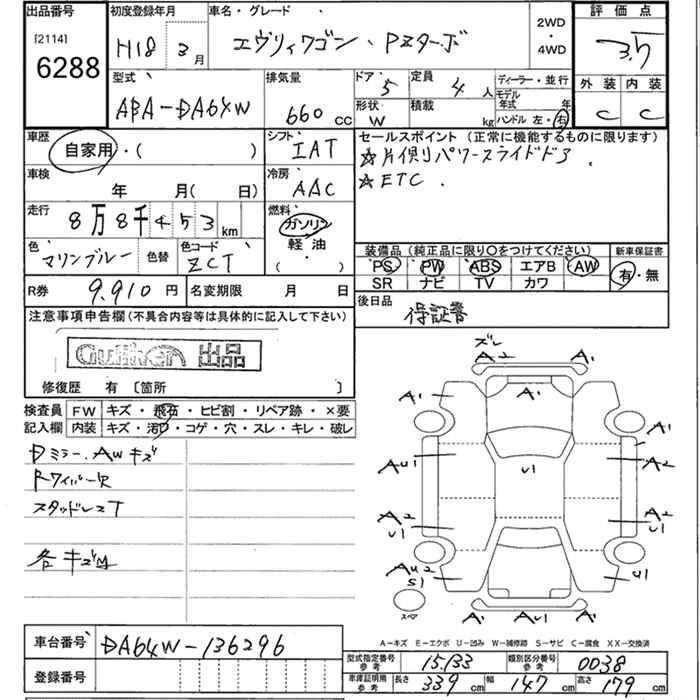 出品番号 初度登録年月 車名・グレード 2WD・4WD 評価点
[2114] 6288 H18 3月 エヴリィワゴン、PZターボ 3.5
型式 排気量 ドア 5 定員 4人 ディーラー・並行 外装 内装
ABA-DA64W 660 CC 形状 W 積載 kg モデル年式 年 ハンドル 左・右 C C
車歴 自家用・( ) シフト IAT セールスポイント (正常に機能するものに限ります)
☆片側リパワースライドドア.
車検 年 月( 日) 冷房 AAC ☆ETC.
走行 8万8千453km 燃料 ガソリン 軽油 ( )
色 マリンブルー 色替 色コード ZCT 装備品 (純正品に限り○をつけてください) 新車保証書
PS PW ABS エアB AW 有・無
SR ナビ TV カワ
R券 9.910円 名変期限 月 日 後日品 保証書
注意事項申告欄(不具合内容等は具体的に記入して下さい)
Gulliver 出品
修復歴 有 [箇所 ]
検査員記入欄 FW キズ・飛石・ヒビ割・リペア跡・×要
内装 キズ・汚レ・コゲ・穴・スレ・キレ・破レ
Dミラー、AWキズ
Rワイパー欠
スタッドレスT
各キズ凹
ズレ
A2 A1
A1 A1
AU1 U1 A2
A2 U1 A2 U1
AU2 S1 U1
スペア A1 AU1 A1
A-キズ E-エクボ U-凹み W-補修跡 S-サビ C-腐食 XX-交換済
車台番号 DA64W-136296
型式指定番号 参考 15133 類別区分番号 参考 0038
登録番号 車庫証明用 参考 長さ 339cm 幅 147cm 高さ 179cm